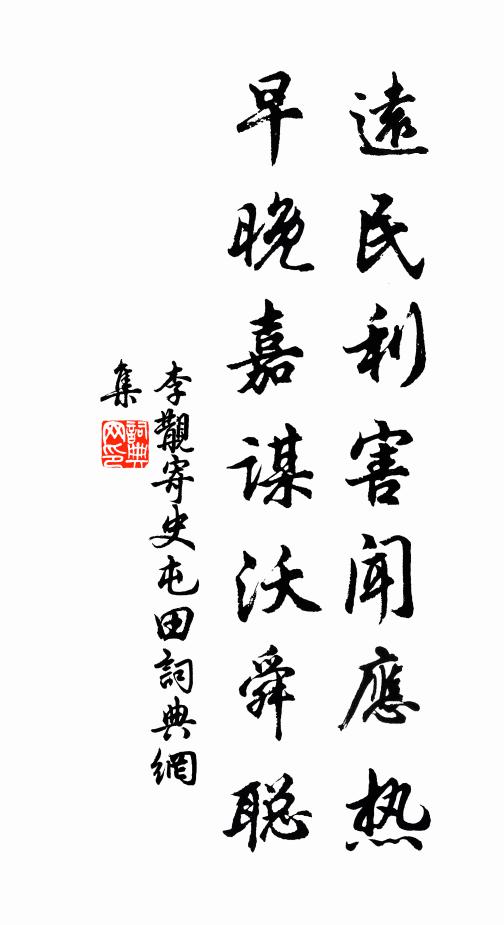 遠民利害聞應热
早晚嘉謀沃舜聪
李覯寄史屯田詞典網
集
詞典网印